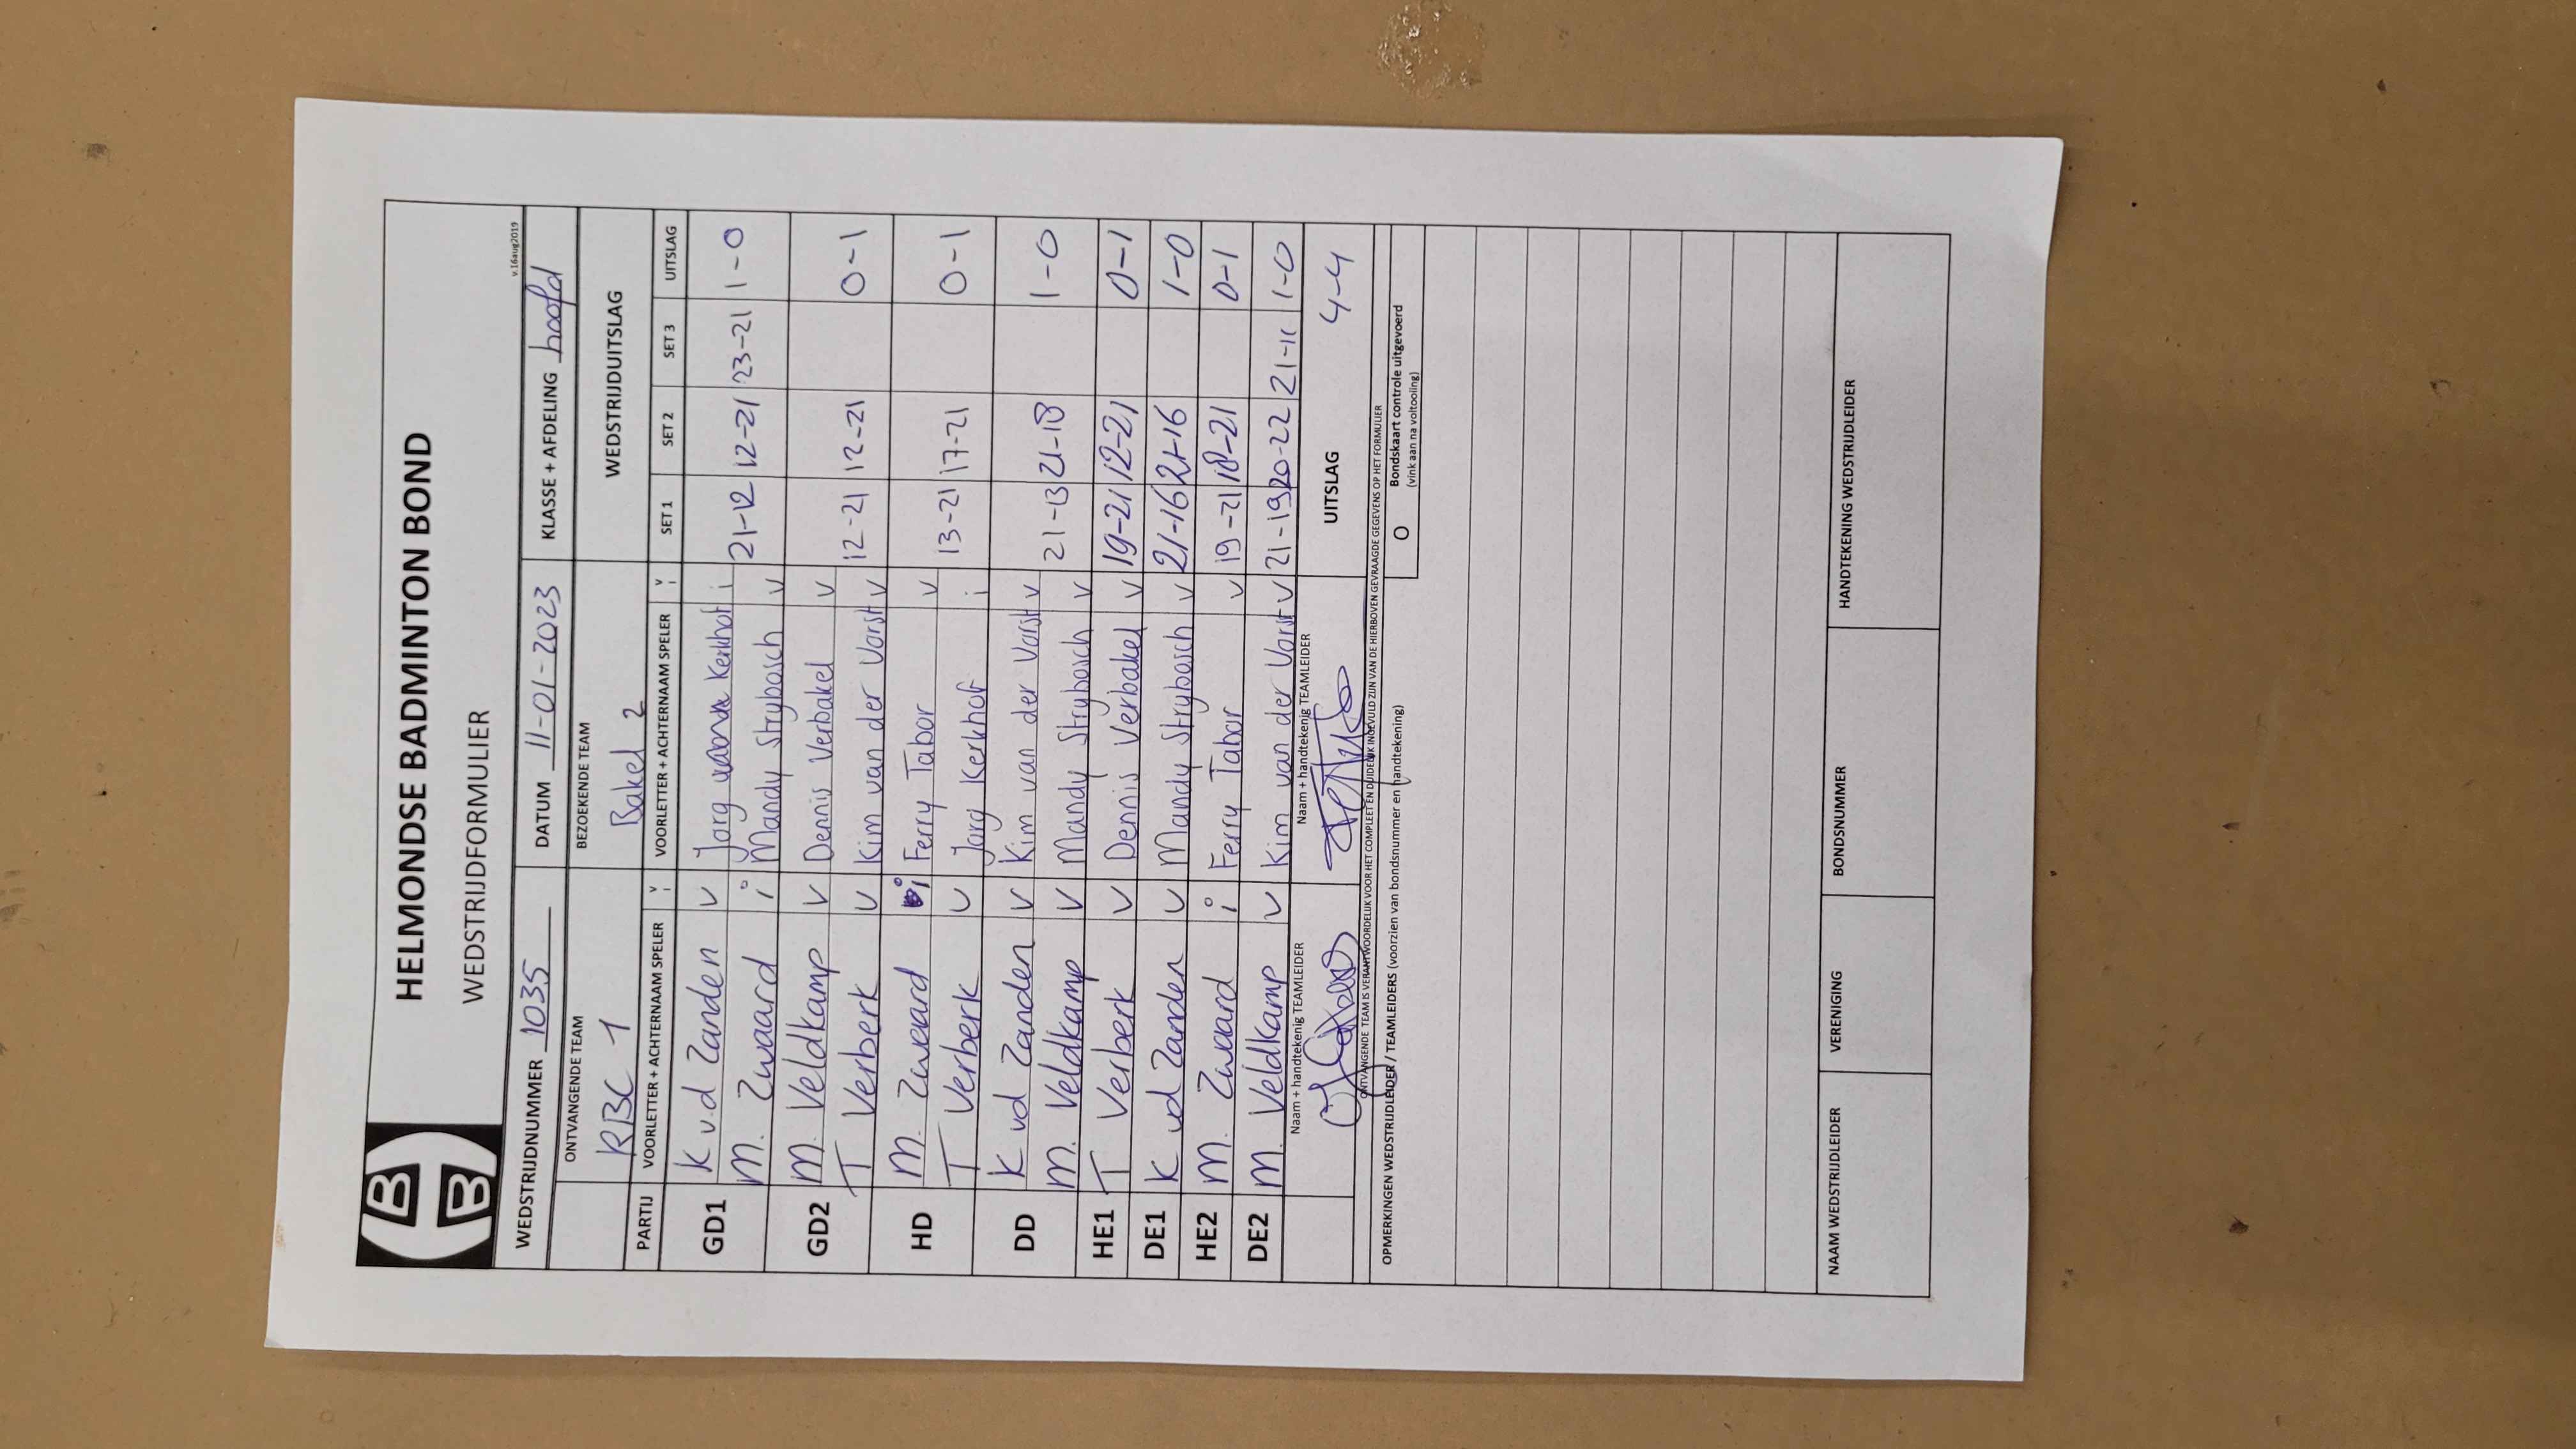 HELMONDSE BADMINTON BOND
WEDSTRIJDFORMULIER
v.16aug2019
WEDSTRIJDNUMMER 1035 DATUM 11-01-2023 KLASSE + AFDELING hoofd
ONTVANGENDE TEAM BEZOEKENDE TEAM WEDSTRIJDUITSLAG
RBC 1 Bakel 2
PARTIJ VOORLETTER + ACHTERNAAM SPELER V i VOORLETTER + ACHTERNAAM SPELER V i SET 1 SET 2 SET 3 UITSLAG
GD1 K v.d Zanden v Jorg Kerkhof i
M. Zwaard i Mandy Strybosch v 21-12 12-21 23-21 1-0
GD2 M. Veldkamp v Dennis Verbakel v
T Verberk v Kim van der Vorst v 12-21 12-21 0-1
HD M. Zwaard i Ferry Tabor v
T Verberk v Jorg Kerkhof i 13-21 17-21 0-1
DD K vd Zanden v Kim van der Vorst v
M. Veldkamp v Mandy Strybosch v 21-13 21-18 1-0
HE1 T Verberk v Dennis Verbakel v 19-21 12-21 0-1
DE1 K vd Zanden v Mandy Strybosch v 21-16 21-16 1-0
HE2 M. Zwaard i Ferry Tabor v 19-21 18-21 0-1
DE2 M. Veldkamp v Kim van der Vorst v 21-19 20-22 21-11 1-0
Naam + handtekenig TEAMLEIDER Naam + handtekenig TEAMLEIDER UITSLAG 4-4
ONTVANGENDE TEAM IS VERANTWOORDELIJK VOOR HET COMPLEET EN DUIDELIJK INGEVULD ZIJN VAN DE HIERBOVEN GEVRAAGDE GEGEVENS OP HET FORMULIER
OPMERKINGEN WEDSTRIJDLEIDER / TEAMLEIDERS (voorzien van bondsnummer en handtekening)
O Bondskaart controle uitgevoerd
(vink aan na voltooiing)
NAAM WEDSTRIJDLEIDER VERENIGING BONDSNUMMER HANDTEKENING WEDSTRIJDLEIDER